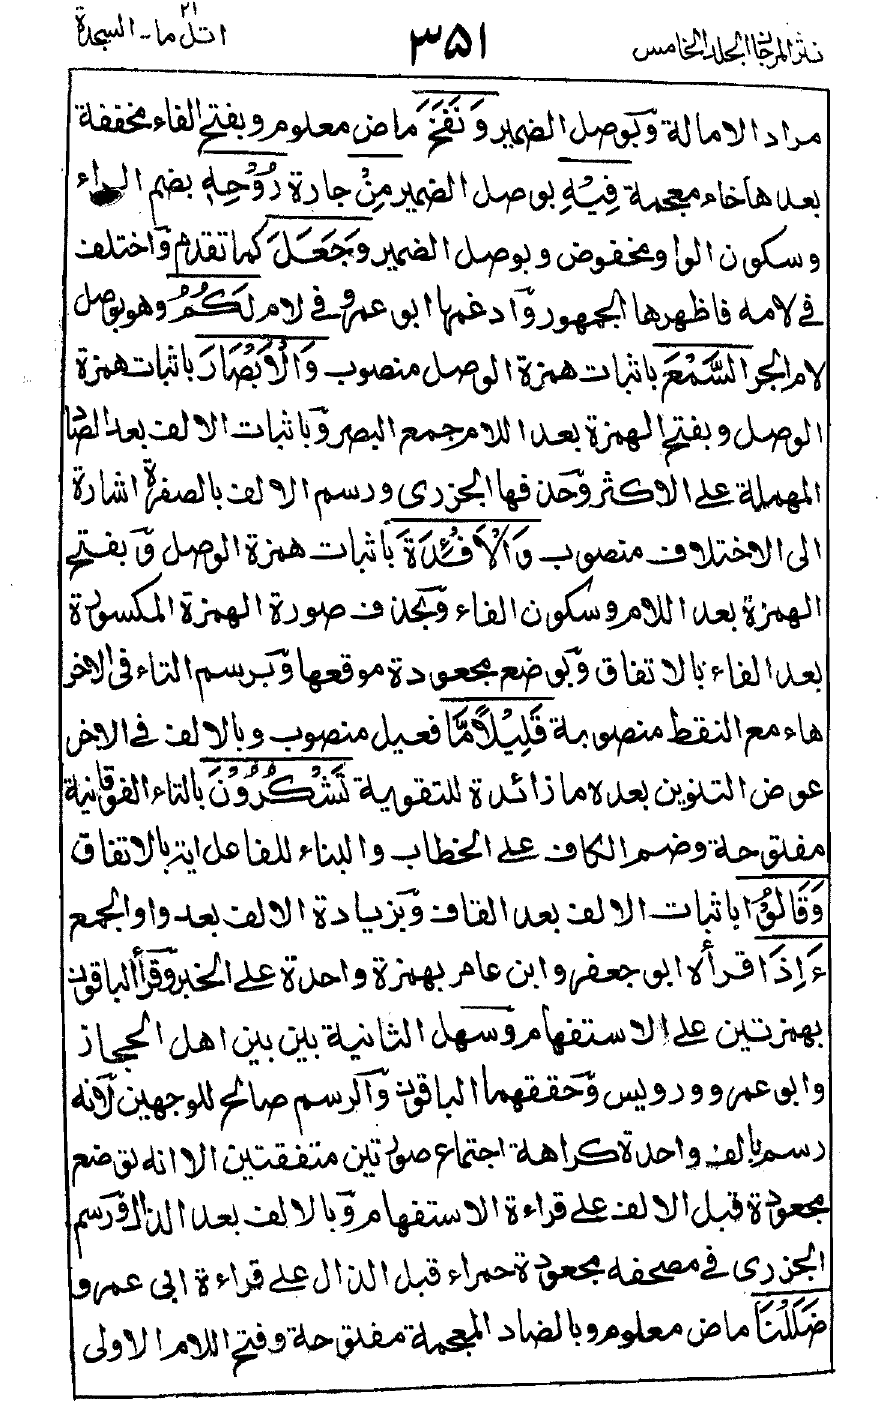 نثر المرجان الجلد الخامس
۳۵۱
اتل ما ـ السجدة
۲۱
مراد الامالة وَبوصل الضمير وَنَفَخَ ماض معلوم وبفتح الفاء مخففة
بعدها خاء معجمة فِيْهِ بوصل الضمير مِنْ جارة رُوْحِهٖ بضم الراء
وسكون الواو مخفوض وبوصل الضمير وَجَعَلَ كما تقدم وَاختلف
في لامه فاظهرها الجمهور وَادغمها ابو عمرو في لام لَكُمُ وهو بوصل
لام الجر السَّمْعَ باثبات همزة الوصل منصوب وَالْاَبْصَارَ باثبات همزة
الوصل وبفتح الهمزة بعد اللام جمع البصر وَباثبات الالف بعد الصاد
المهملة على الاكثر وَحذفها الجزرى ورسم الالف بالصفرة اشارة
الى الاختلاف منصوب وَالْاَفْئِدَةَ باثبات همزة الوصل وَبفتح
الهمزة بعد اللام وسكون الفاء وَبحذف صورة الهمزة المكسورة
بعد الفاء بالاتفاق وَبوضع مجعودة موقعها وَبرسم التاء في الاخر
هاء مع النقط منصوبة قَلِيْلًا مَّا فعيل منصوب وبالالف في الاخر
عوض التنوين بعده ما زائدة للتقوية تَشْكُرُوْنَ بالتاء الفوقانية
مفتوحة وضم الكاف على الخطاب والبناء للفاعل اية بالاتفاق
وَقَالُوْا باثبات الالف بعد القاف وَبزيادة الالف بعد واو الجمع
ءَاِذَا قرأه ابو جعفر وابن عامر بهمزة واحدة على الخبر وَقرأ الباقون
بهمزتين على الاستفهام وَسهل الثانية بين بين اهل الحجاز
وابو عمرو ورويس وَحققهما الباقون وَالرسم صالح للوجهين لَانه
رسم بالف واحدة كراهة اجتماع صورتين متفقتين الا انه توضع
مجعودة قبل الالف على قراءة الاستفهام وَبالالف بعد الذال وَرسم
الجزرى في مصحفه مجعودة حمراء قبل الذال على قراءة ابى عمرو
ضَلَلْنَا ماض معلوم وبالضاد المعجمة مفتوحة وفتح اللام الاولى